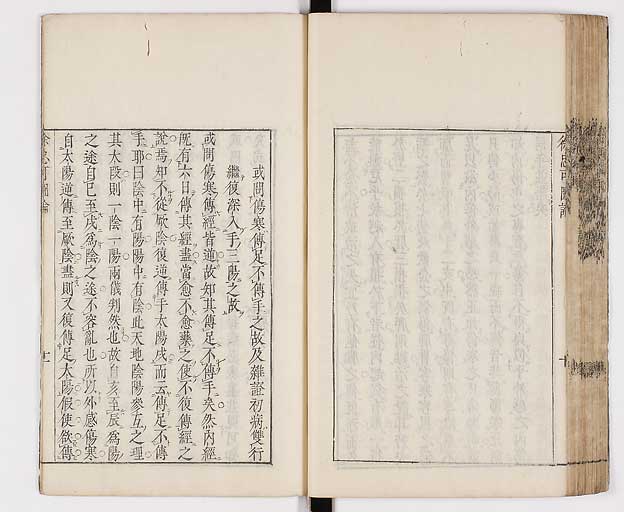 徐忠可圖論
十
或問傷寒傳足不傳手之故及雜證初病雙行
繼復深入手三陽之故
或問傷寒傳經皆逆故知其傳足不傳手矣然內經
既有六日傳其經盡當愈不愈藥之使不復傳經之
說焉知不從厥陰復逆傳手太陽戌而云傳足不傳
手耶曰陰中有陽陽中有陰此天地陰陽參互之理
其大段則一陰一陽兩儀判然也故自亥至辰爲陽
之途自巳至戌爲陰之途不容亂也所以外感傷寒
自太陽逆傳至厥陰盡則又復傳足太陽假使欲傳
徐忠可圖論
十一